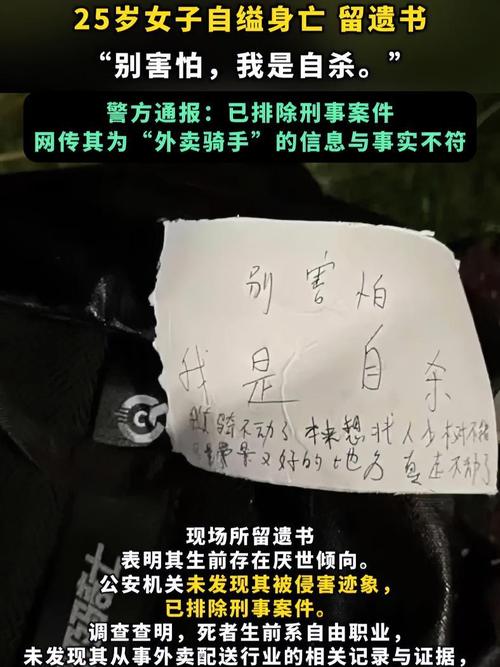 25岁女子自缢身亡 留遗书
“别害怕，我是自杀。”
警方通报：已排除刑事案件
网传其为“外卖骑手”的信息与事实不符
别害怕
我是自杀
骑不动了 本来想找人少
又好的地方 真走不动了
现场所留遗书
表明其生前存在厌世倾向。
公安机关未发现其被侵害迹象，
已排除刑事案件。
调查查明，死者生前系自由职业，
未发现其从事外卖配送行业的相关记录与证据，